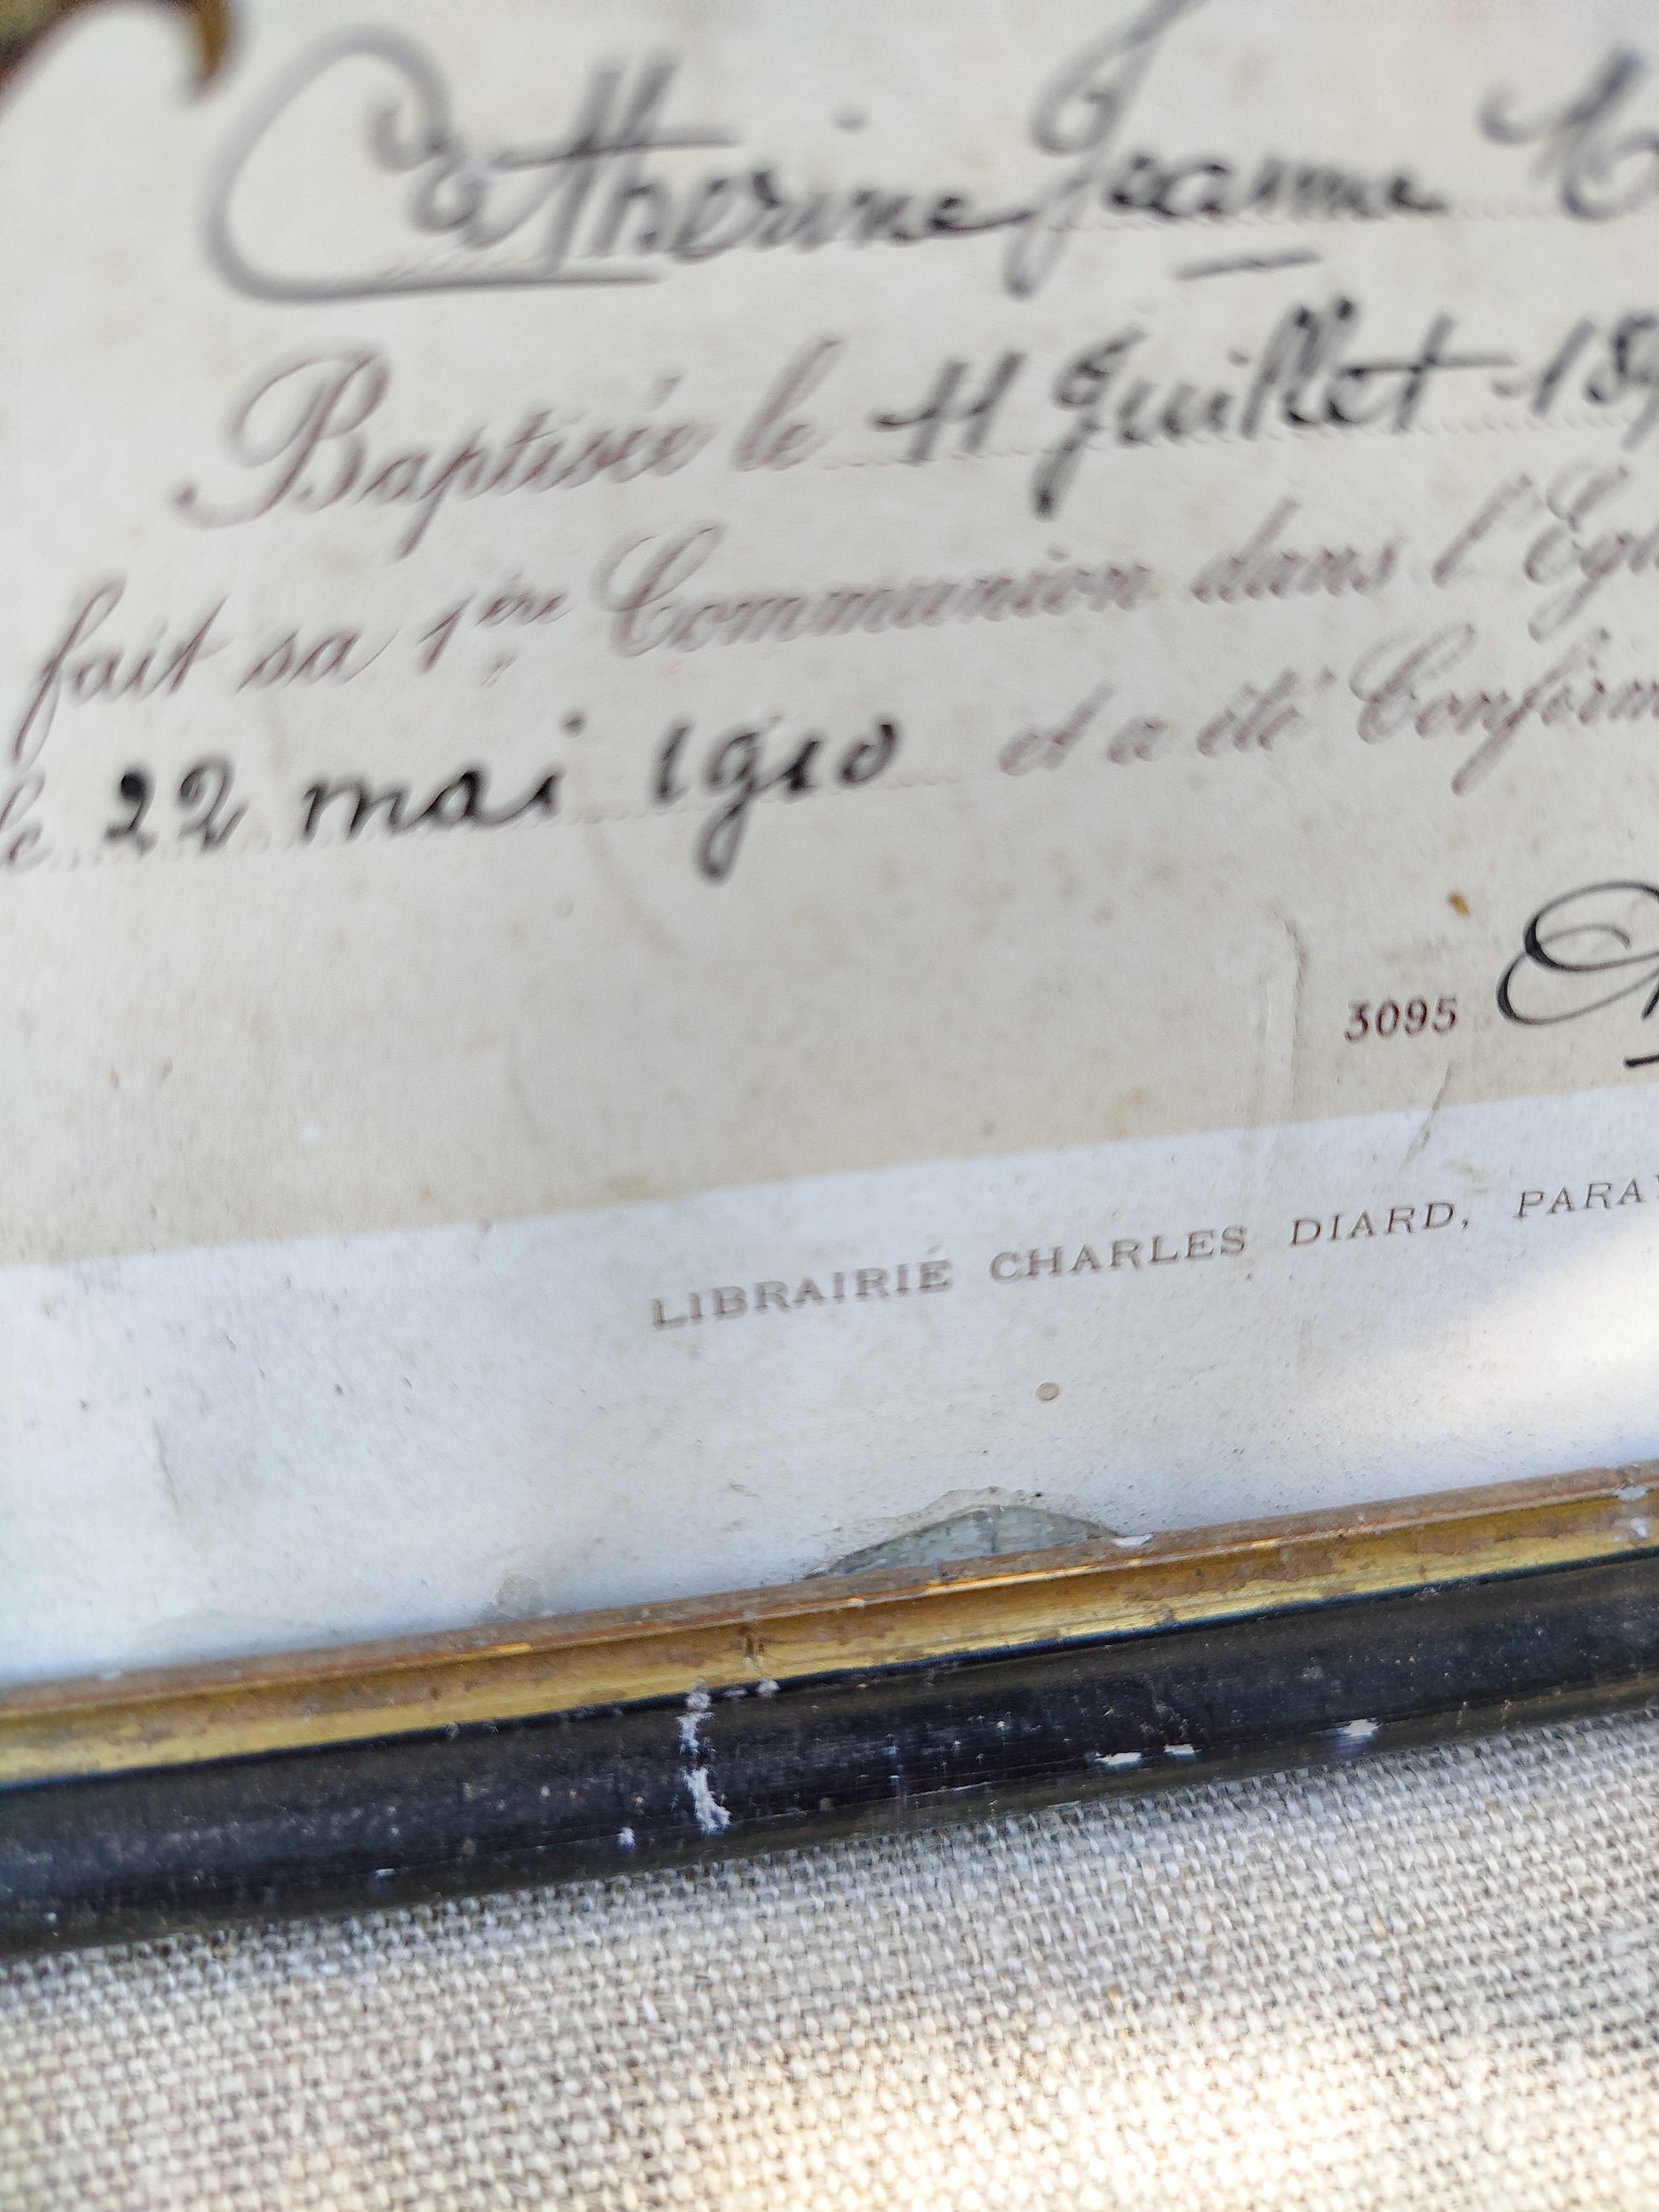 Catherine Jeanne
Baptisée le 11 Juillet 189
fait sa 1ère Communion dans l'Egli
le 22 mai 1910 et a été Confirm
3095
LIBRAIRIE CHARLES DIARD, PARAY